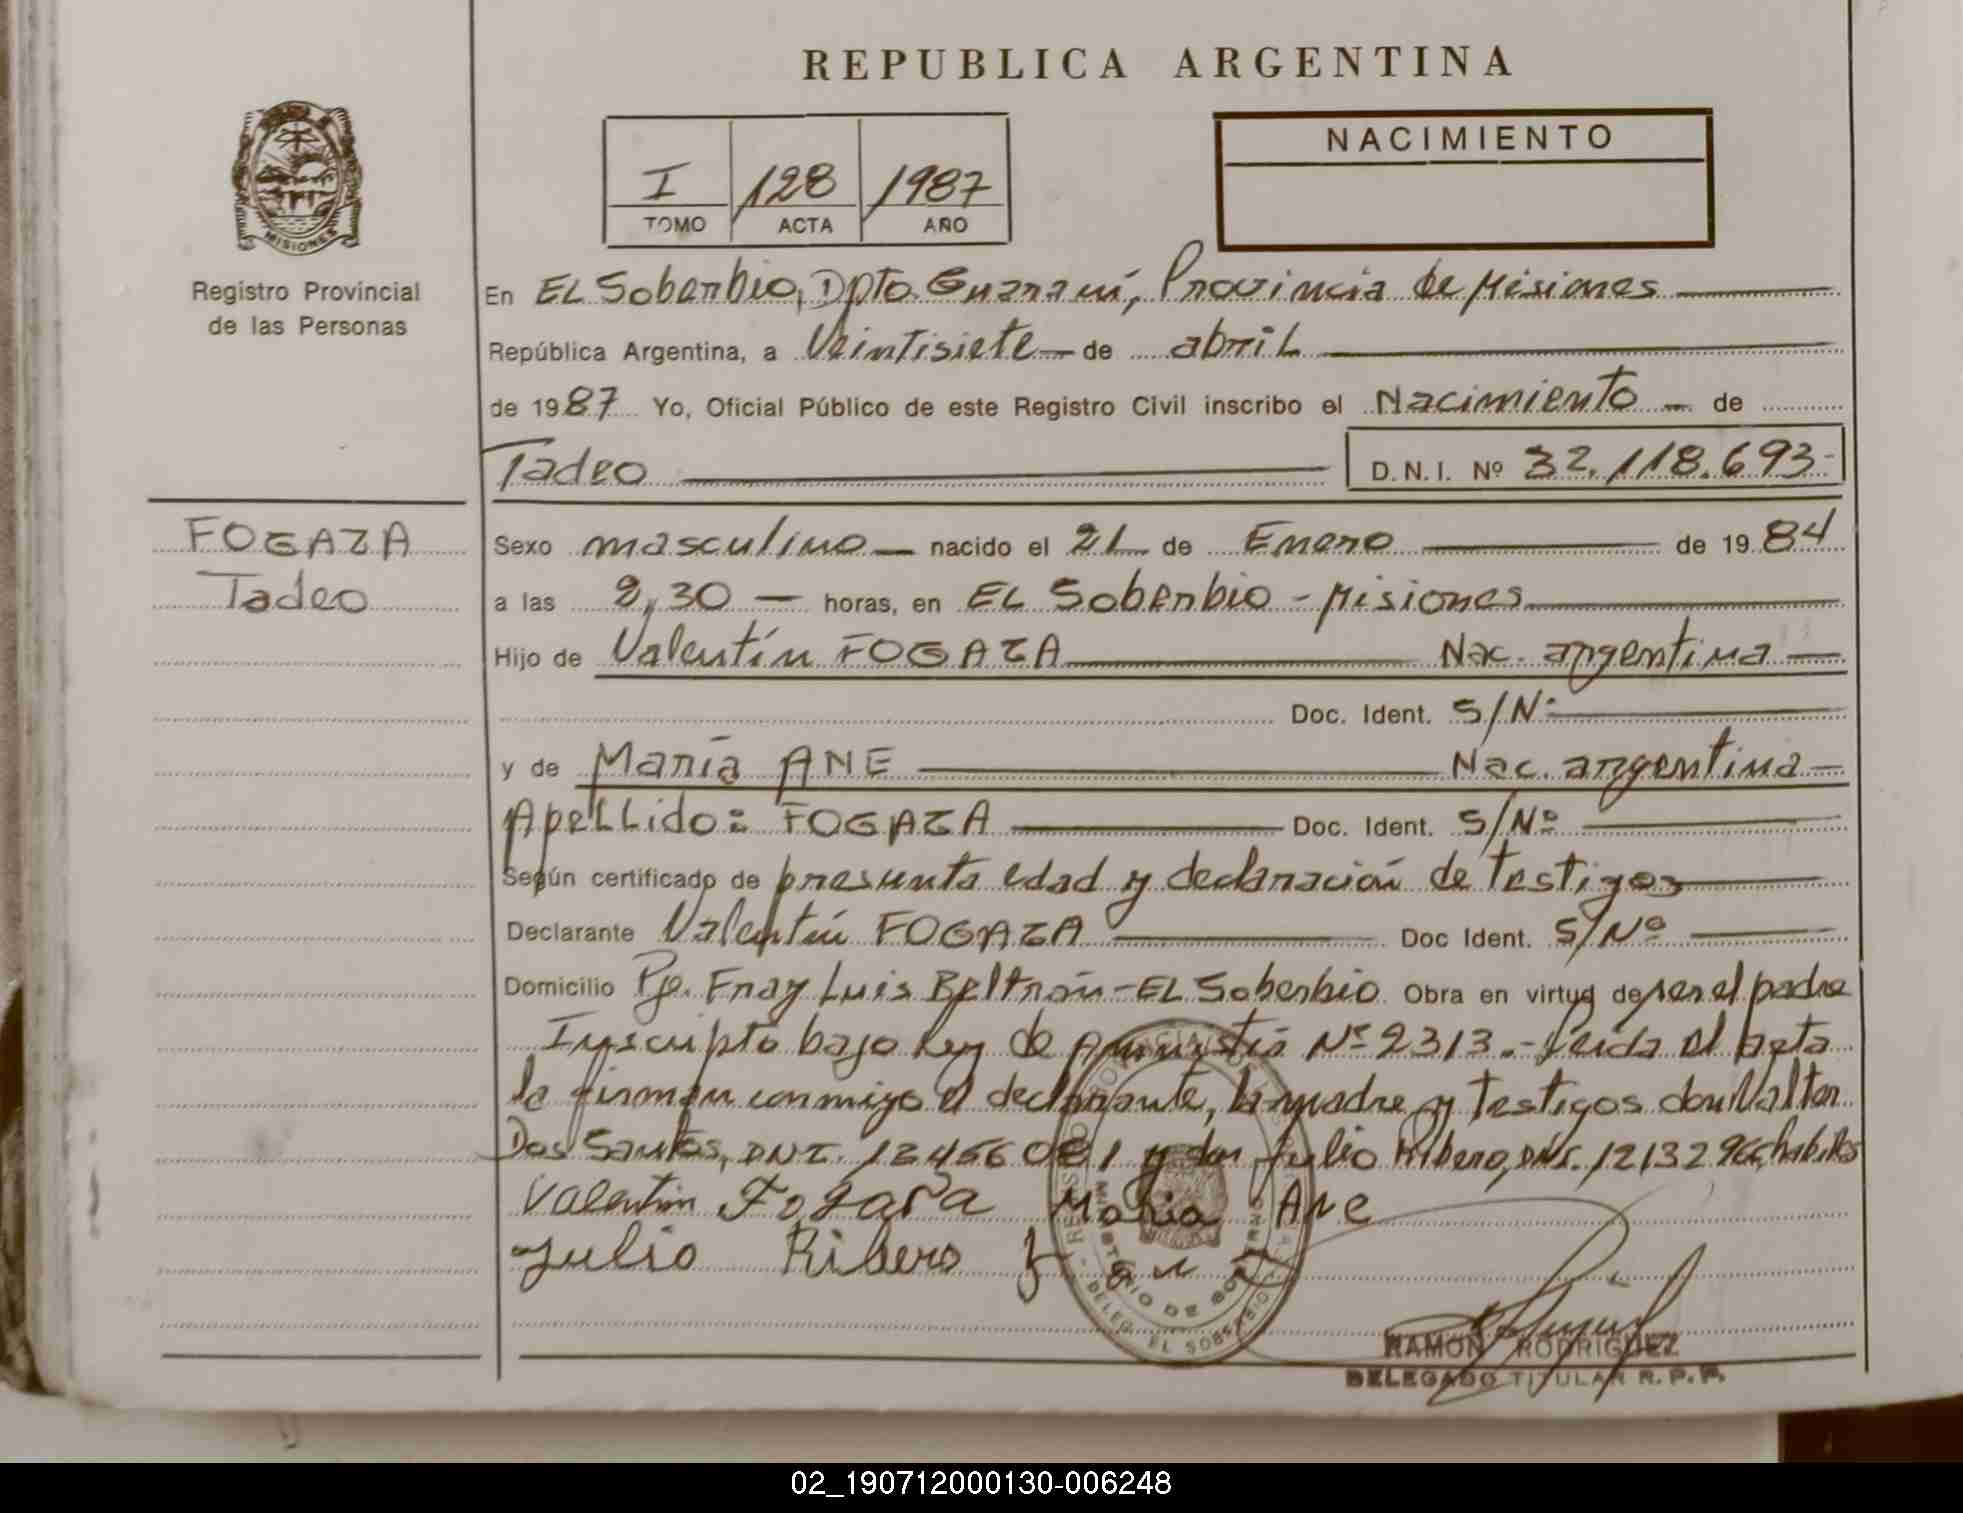 REPUBLICA ARGENTINA
I 128 1987
TOMO ACTA AÑO
NACIMIENTO
MISIONES
Registro Provincial
de las Personas
En EL Soberbio, Dpto. Guaraní, Provincia de Misiones
República Argentina, a Veintisiete de abril
de 1987 Yo, Oficial Público de este Registro Civil inscribo el Nacimiento de
Tadeo D.N.I. Nº 32.118.693
FOGAZA
Tadeo
Sexo masculino nacido el 21 de Enero de 1984
a las 2,30 horas, en EL Soberbio - Misiones
Hijo de Valentín FOGAZA Nac. argentina
Doc. Ident. S/Nº
y de María ANE Nac. argentina
ApeLLido: FOGAZA Doc. Ident. S/Nº
Según certificado de presunta edad y declaración de testigos
Declarante Valentín FOGAZA Doc Ident. S/Nº
Domicilio Pje. Fray Luis Beltrán - EL Soberbio Obra en virtud de ser el padre
Inscripto bajo Ley de Amnistía Nº 2313.- Leída el acta
la firman conmigo el declarante, la madre y testigos don Valter
Dos Santos, DNI. 12466081 y don Julio Ribero, DNI. 12132966, habiles
Valentin Fogaça Maria Ane
Julio Ribero
DELEG. EL SOBERBIO
RAMON RODRIGUEZ
DELEGADO TITULAR R.P.P.
02_190712000130-006248